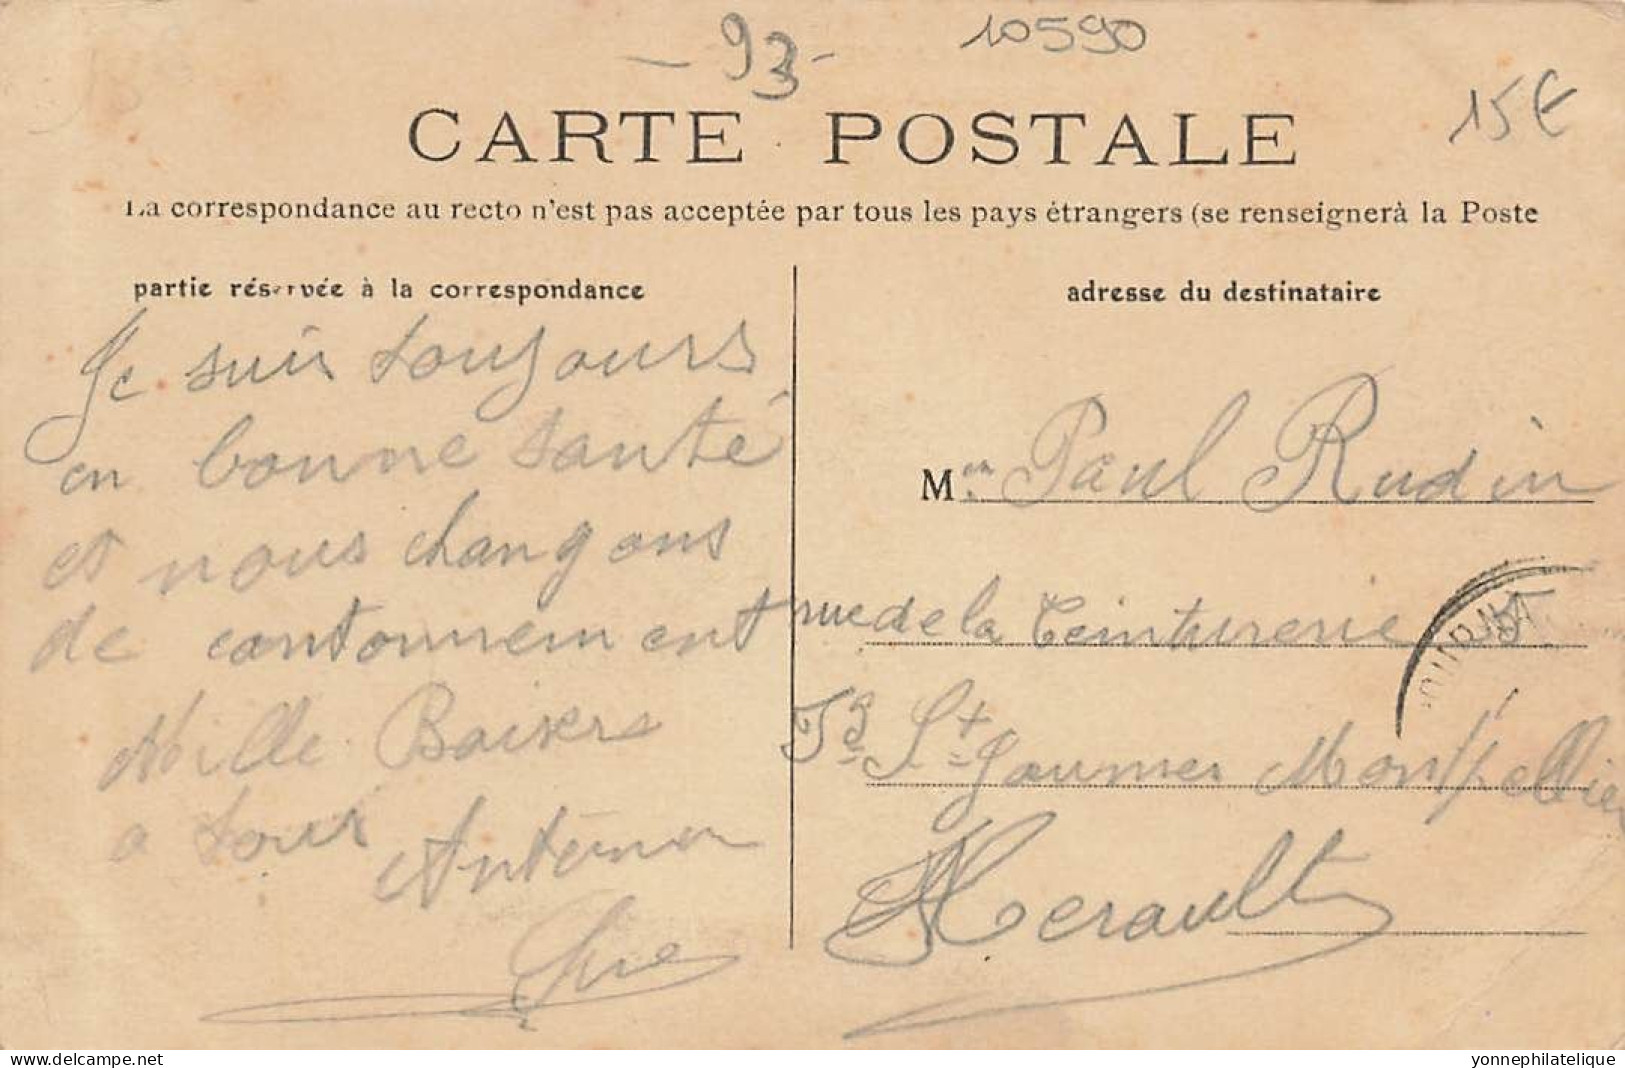 - 93 -
10590
15€
CARTE POSTALE
La correspondance au recto n'est pas acceptée par tous les pays étrangers (se renseignerà la Poste
partie réservée à la correspondance
Je suis toujours
en bonne santé
et nous changons
de cantonnement
Mille Baisers
a tous
adresse du destinataire
Mon Paul Rudin
rue de la Teinturerie
Fg St Jaumes Montpellier
Herault
delcampe.net
yonnephilatelique